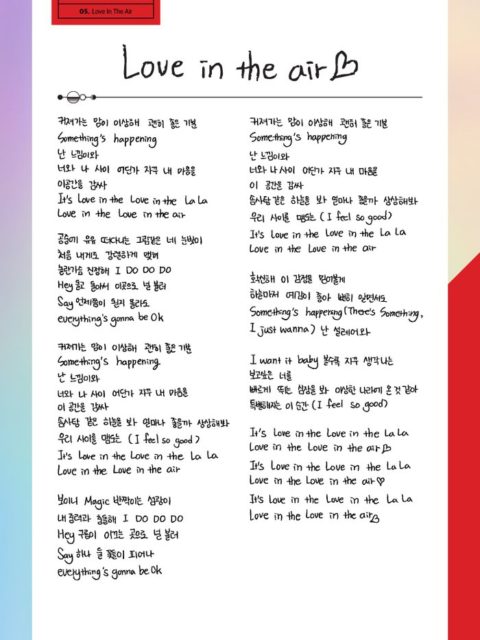 05. Love In The Air
Love in the air♡
커져가는 맘이 이상해 괜히 좋은 기분
Something's happening
난 느낌이와
너와 나 사이 어딘가 자꾸 내 마음을
이공간을 감싸
It's Love in the Love in the La La
Love in the Love in the air
공중에 유유 떠다니는 그림같은 네 눈빛이
처음 내게도 강렬하게 맺혀
놀란가슴 진정해 I DO DO DO
Hey 돌고 돌아서 이곳으로 널 불러
Say 언제쯤이 될지 몰라도
everything's gonna be OK
커져가는 맘이 이상해 괜히 좋은 기분
Something's happening
난 느낌이와
너와 나 사이 어딘가 자꾸 내 마음을
이 공간을 감싸
솜사탕 같은 하늘을 봐 얼마나 좋을까 상상해봐
우리 사이를 맴도는 (I feel so good)
It's Love in the Love in the La La
Love in the Love in the air
보이니 Magic 반짝이는 심장이
내 중력과 충돌해 I DO DO DO
Hey 구름이 이끄는 곳으로 널 불러
Say 하나 둘 꽃들이 피어나
everything's gonna be OK
커져가는 맘이 이상해 괜히 좋은 기분
Something's happening
난 느낌이와
너와 나 사이 어딘가 자꾸 내 마음을
이 공간을 감싸
솜사탕 같은 하늘을 봐 얼마나 좋을까 상상해봐
우리 사이를 맴도는 (I feel so good)
It's Love in the Love in the La La
Love in the Love in the air
혼란해 이 감정을 믿어볼게
하늘마저 예감이 좋아 뻔히 알면서도
Something's happening (There's something,
I just wanna) 난 설레어와
I want it baby 볼수록 자꾸 생각나는
보고싶은 너를
빠르게 뛰는 심장을 봐 이상한 나라에 온 것 같아
특별해지는 이 순간 (I feel so good)
It's Love in the Love in the La La
Love in the Love in the air♡
It's Love in the Love in the La La
Love in the Love in the air♡
It's Love in the Love in the La La
Love in the Love in the air♡